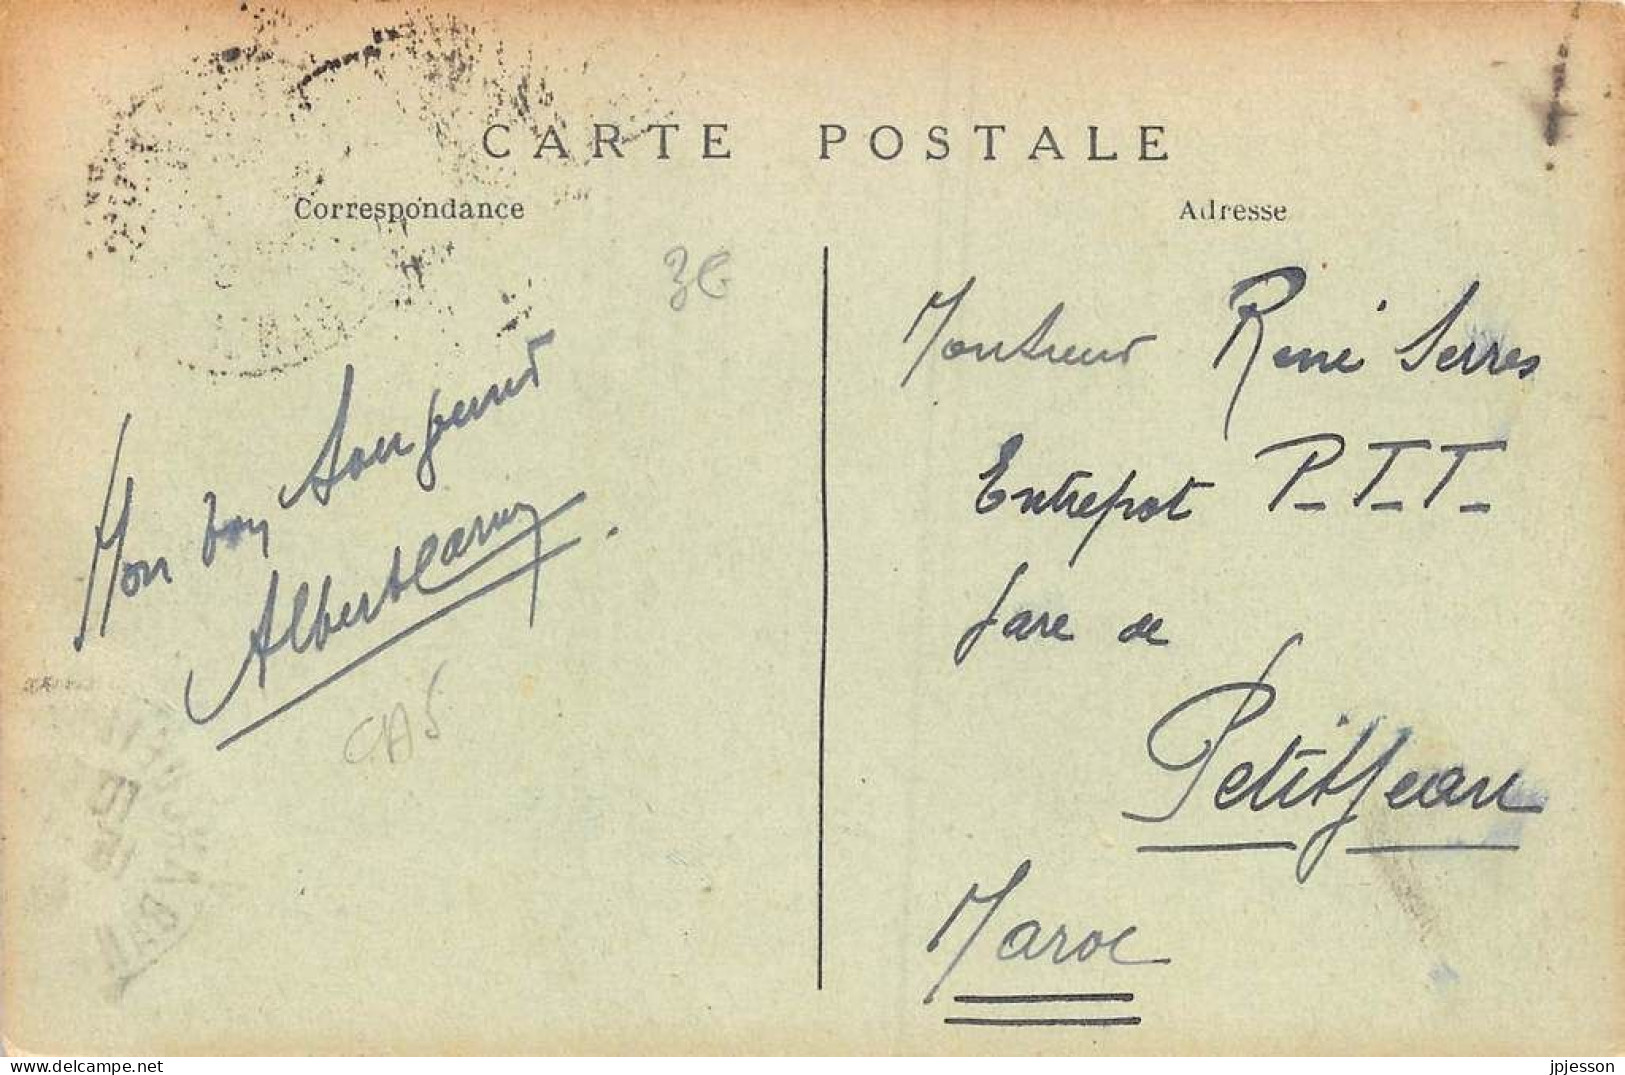 CARTE POSTALE
Correspondance
Adresse
3€
Mon bon Souvenir
Albert
CA5
Monsieur René Serres
Entrepot P.T.T.
Gare de
PetitJean
Maroc
www.delcampe.net
jpjesson